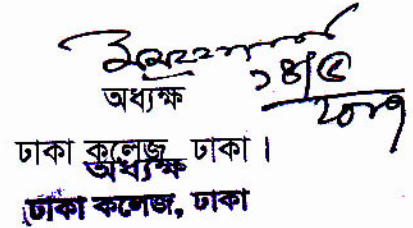 ১৪/৫
অধ্যক্ষ
ঢাকা কলেজ, ঢাকা।
অধ্যক্ষ
ঢাকা কলেজ, ঢাকা